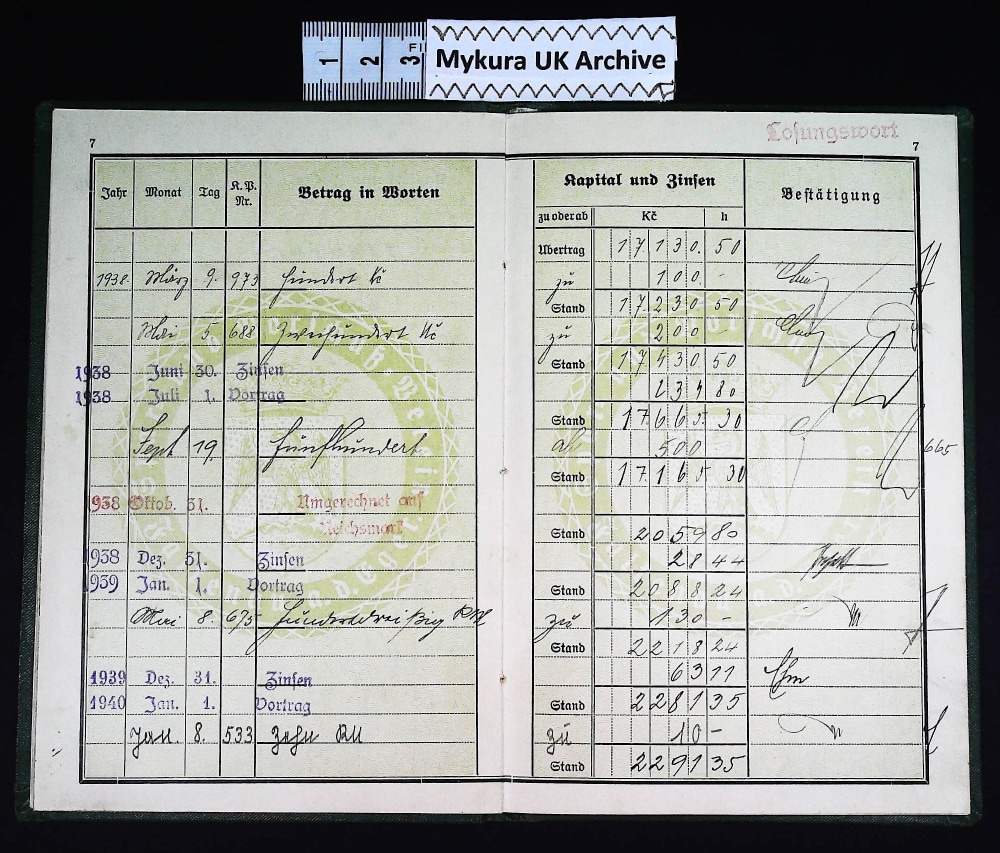 1 2 3
Mykura UK Archive
Losungswort
7 7
Jahr Monat Tag K. P. Nr. Betrag in Worten Kapital und Zinsen Bestätigung
zu oder ab Kč h
Übertrag 17130. 50
1938. März 9. 973 hundert Kč zu 100. -
Stand 17230 50
Mai 5. 688 Zweihundert Kč zu 200 -
Stand 17430 50
1938 Juni 30. Zinsen
1938 Juli 1. Vortrag 234 80
Stand 17665. 30
Sept 19. Fünfhundert ab 500
665
Stand 17165 30
1938 Oktob. 31. Umgerechnet auf
Reichsmark
Stand 2059 80
1938 Dez. 31. Zinsen 28 44
1939 Jan. 1. Vortrag
Stand 2088 24
Mai 8. 675 hundertdreißig RM zu 130 -
Stand 2218 24
1939 Dez. 31. Zinsen 63 11
1940 Jan. 1. Vortrag Stand 2281 35
Jan. 8. 533 Zehn RM zu 10 -
Stand 2291 35